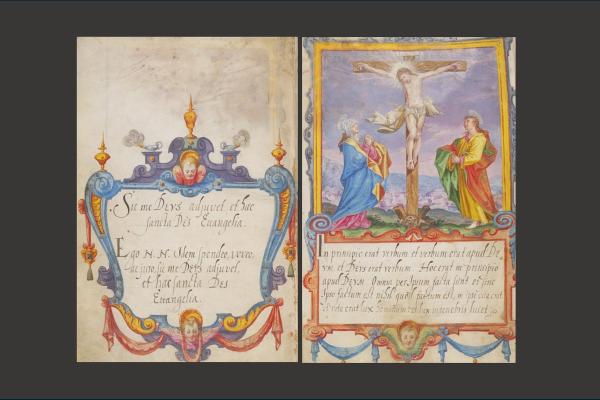 Sic me DEVS adjuvet, et hæc
sancta DEI Euangelia.
Ego N. N. Idem spondeo, voveo,
ac juro, sic me DEVS adjuvet,
et hæc sancta DEI
Euangelia.
In principio erat verbum et verbum erat apud De
vm et Devs erat verbum. Hoc erat in principio
apud DEVM Omnia per Ipsum facta sunt et sine
Ipso factum est nihil quod factum est, in ipso vita erat
et vita erat lux hominum et lux in tenebris lucet